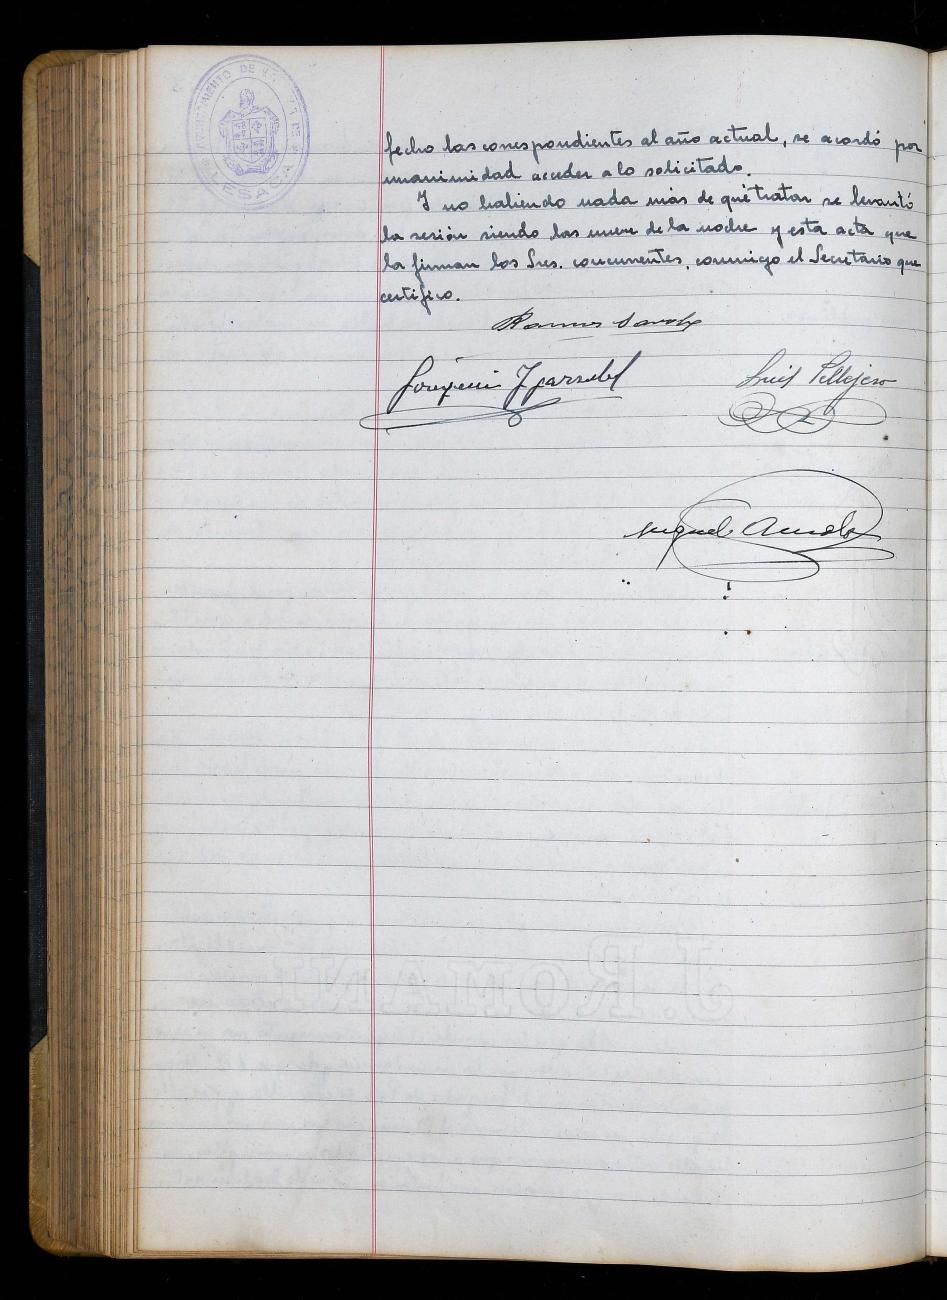 AYUNTAMIENTO DE
LESACA
fecho las correspondientes al año actual, se acordó por
unanimidad acceder a lo solicitado.
Y no habiendo nada más de qué tratar se levantó
la sesión siendo las nueve de la noche y esta acta que
la firman los Sres. concurrentes, conmigo el Secretario que
certifico.
Luis Pellejero
Miguel
J. ROMANI